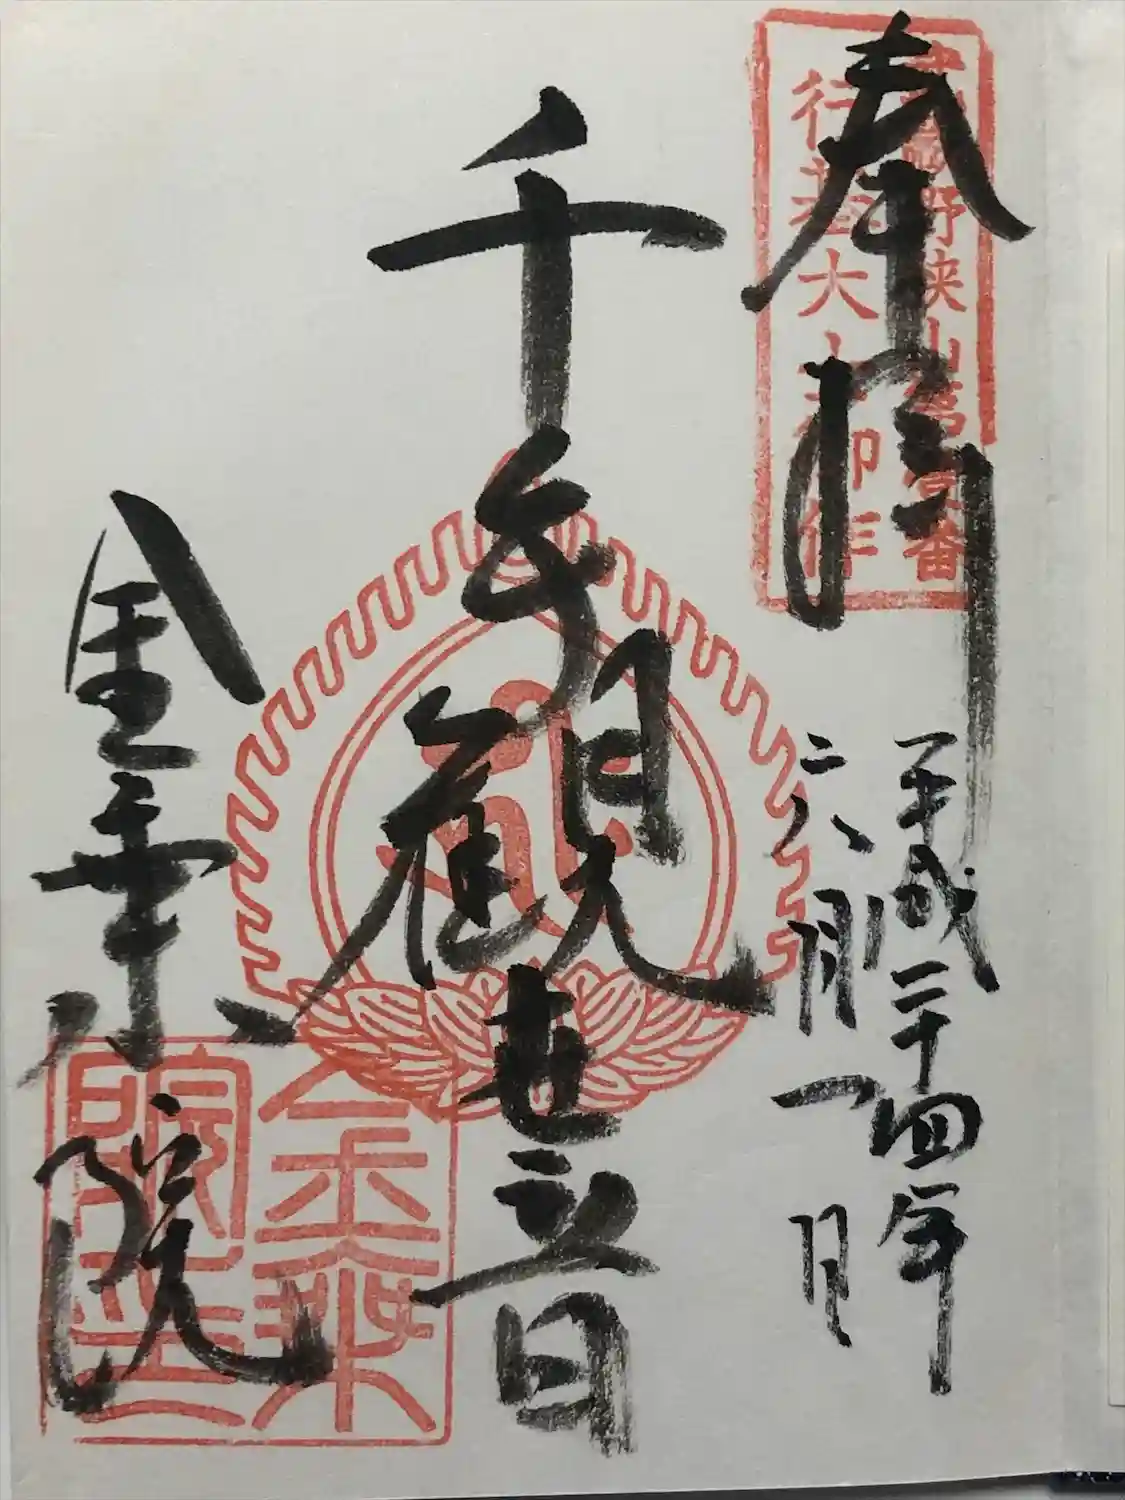 奉拝
行基大士御作
平成二十四年
六月一日
千手観世音
金乗院
金乗
院印